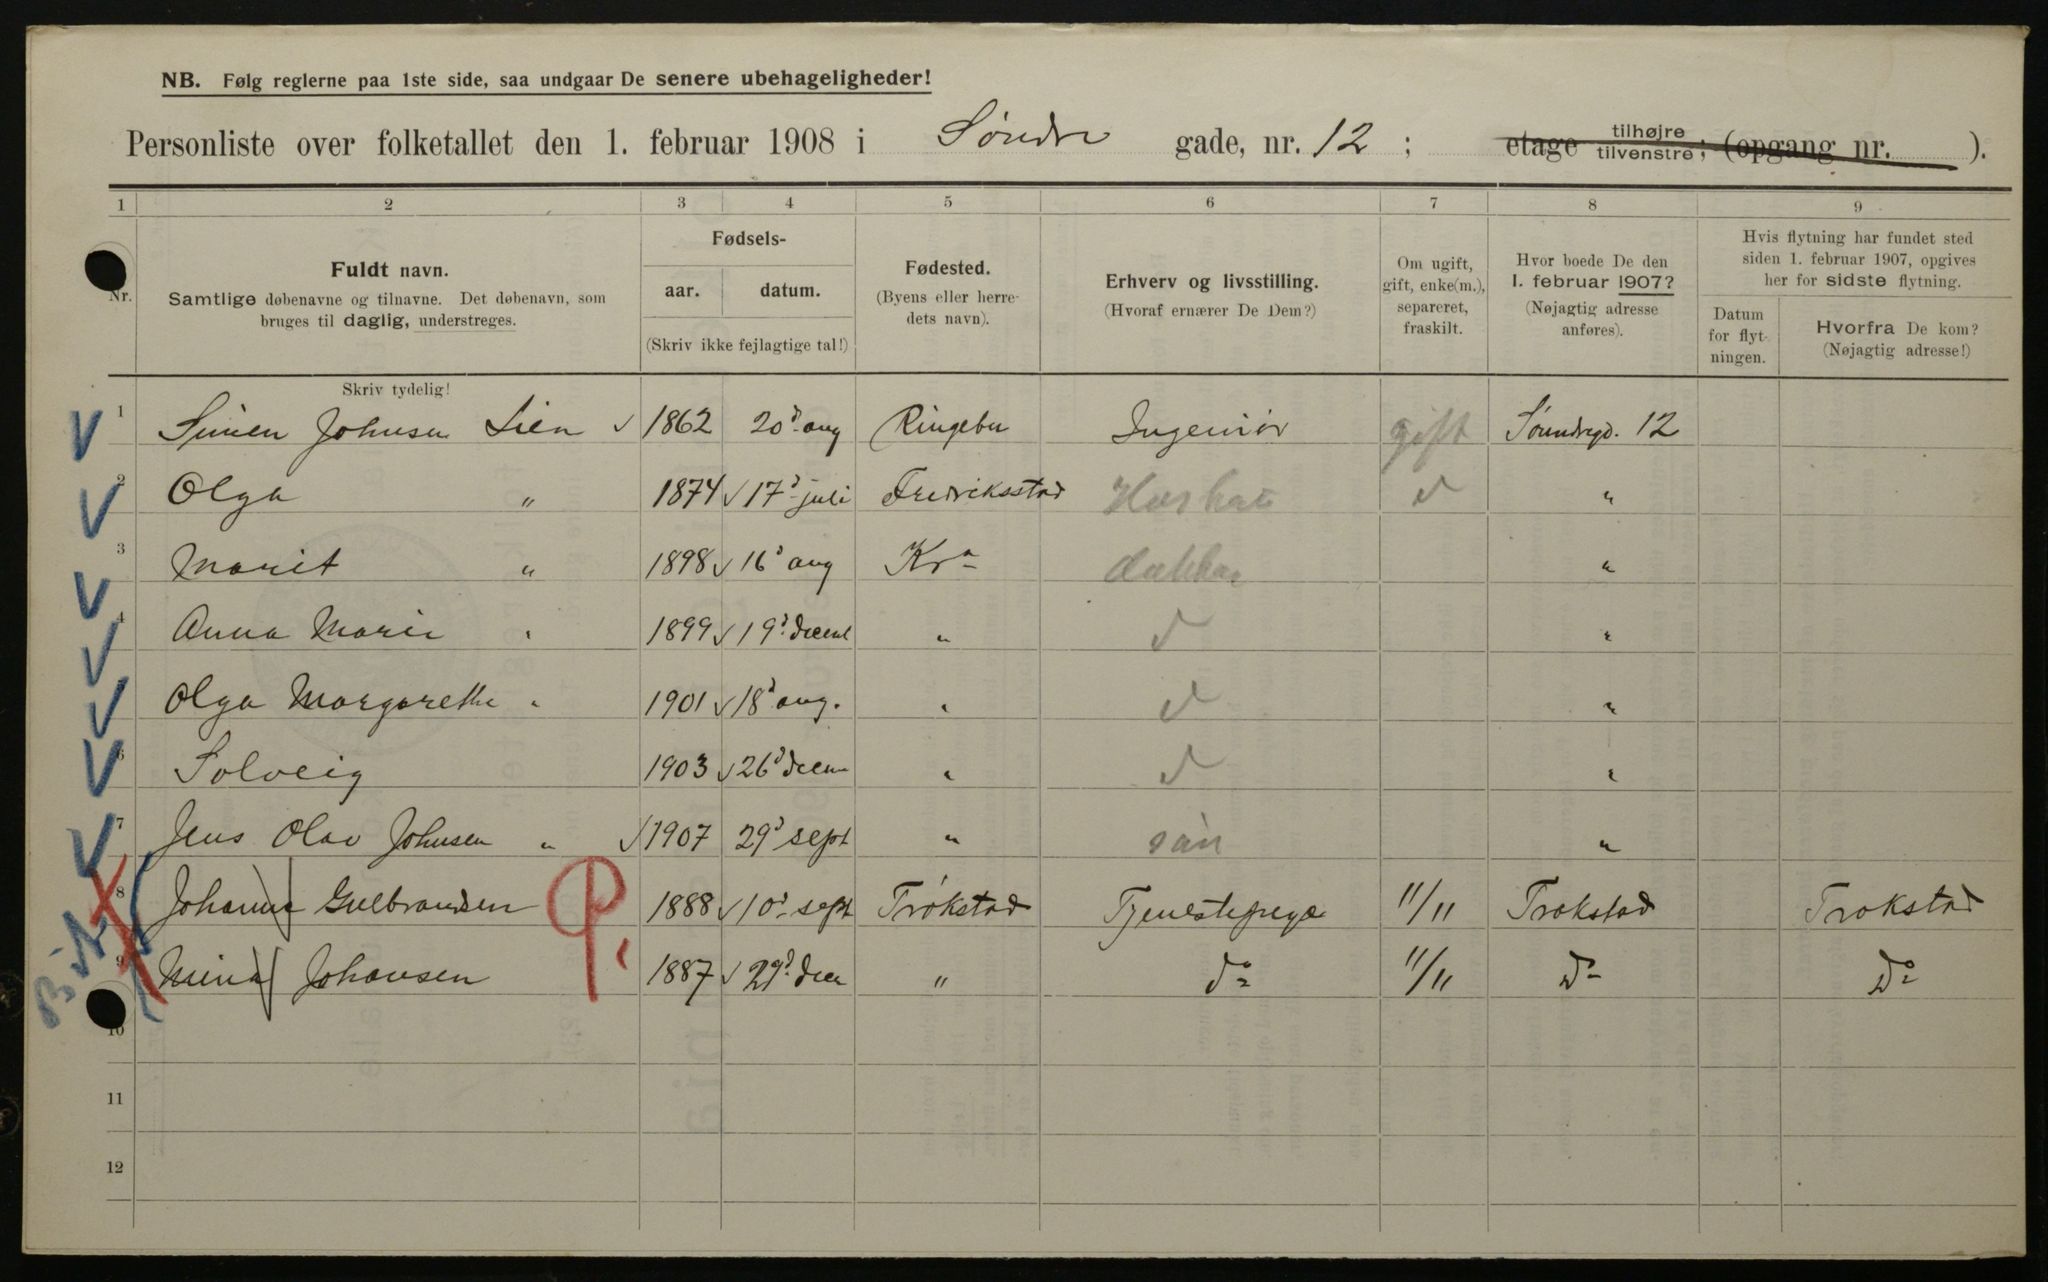 NB. Følg reglerne paa 1ste side, saa undgaar De senere ubehageligheder!
Personliste over folketallet den 1. februar 1908 i Søndre gade, nr. 12 ; etage tilhøjre tilvenstre; (opgang nr. ).
1 2 3 4 5 6 7 8 9
Nr.
Fuldt navn.
Samtlige døbenavne og tilnavne. Det døbenavn, som
bruges til daglig, understreges.
Skriv tydelig!
Fødsels-
aar. datum.
(Skriv ikke fejlagtige tal!)
Fødested.
(Byens eller herre-
dets navn).
Erhverv og livsstilling.
(Hvoraf ernærer De Dem?)
Om ugift,
gift, enke(m.),
separeret,
fraskilt.
Hvor boede De den
1. februar 1907?
(Nøjagtig adresse
anføres).
Hvis flytning har fundet sted
siden 1. februar 1907, opgives
her for sidste flytning.
Datum
for flyt-
ningen.
Hvorfra De kom?
(Nøjagtig adresse!)
1 Simen Johnsen Lien 1862 20d aug Ringebu Ingeniør gift Søndregd. 12
2 Olga " 1874 17d juli Fredriksstad d "
3 Marit " 1898 16d aug Kra "
4 Anna Marie " 1899 19d decemb " d "
Olga Margarethe " 1901 18d aug. " d "
6 Solveig 1903 26d decem " d "
7 Jens Olav Johnsen " 1907 29d sept " søn "
8 Johanne Gulbrandsen 1888 10d sept Trøkstad Tjenestepige "/" Trøkstad Trøkstad
9 Mina Johansen 1887 29d decm " do "/" Do Do
10
11
12